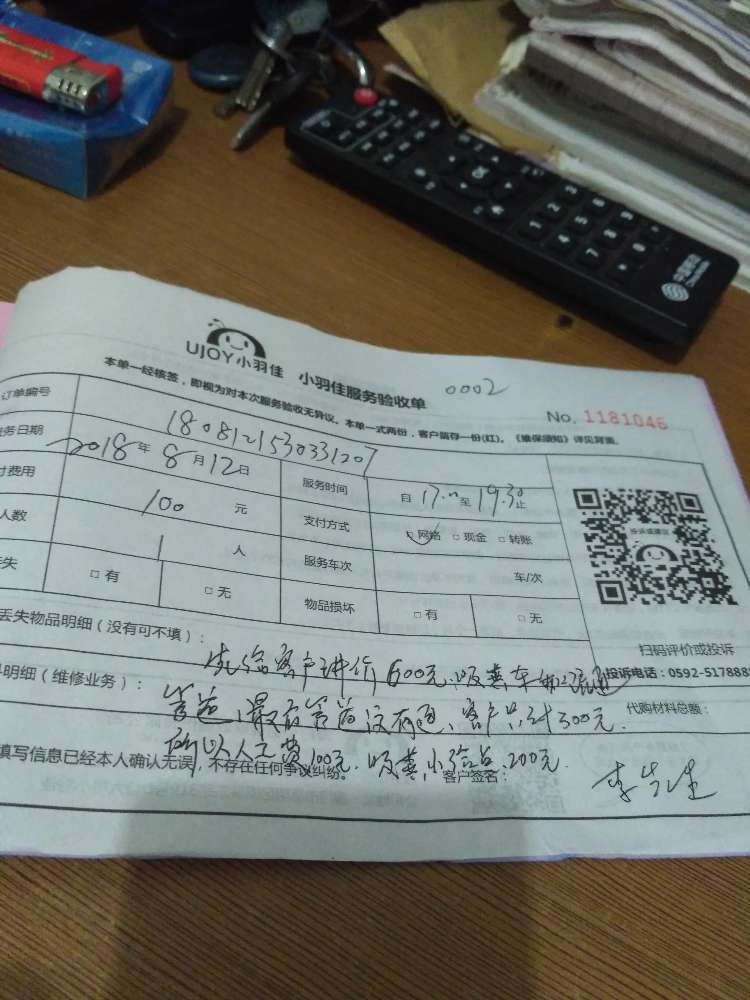 UJOY小羽佳 小羽佳服务验收单 0002
本单一经核签，即视为对本次服务验收无异议。本单一式两份，客户留存一份(红)。《维保须知》详见背面。
No. 1181046
订单编号 1808121530331207
务日期 2018年8月12日 服务时间 自17:00至19:30止
付费用 100元 支付方式 网络 现金 转账
人数 1人 服务车次 车/次
丢失 有 无 物品损坏 有 无
投诉或建议
扫码评价或投诉
投诉电话：0592-5178885
丢失物品明细（没有可不填）：
明细（维修业务）： 代购材料总额：
先给客户讲价600元，吸粪车
管道，最后管道没有通，客户只付300元
所以人工费100元，吸粪 200元
填写信息已经本人确认无误，不存在任何争议纠纷。 客户签名： 李先生
中国移动
China Mobile
OK
1 2 3
4 5 6
7 8 9
* 0 #